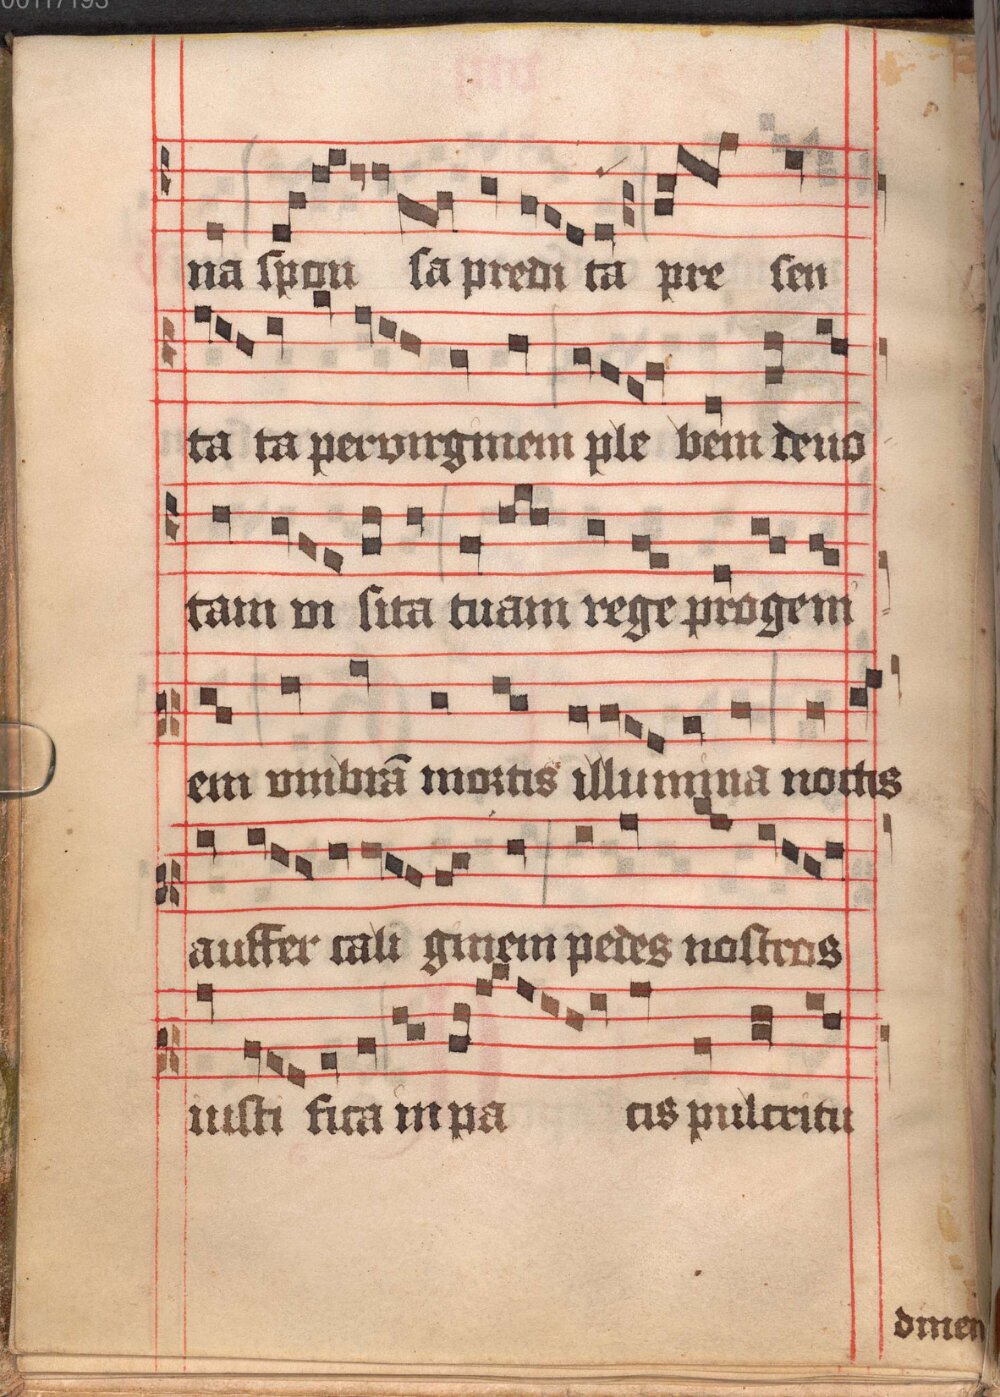 00117193
na spon sa predi ta pre sen
ta ta per virginem ple bem deuo
tam vi sita tuam rege progeni
em vmbrā mortis illumina noctis
auffer cali ginem pedes nostros
iusti fica in pa cis pulcritu
dinen